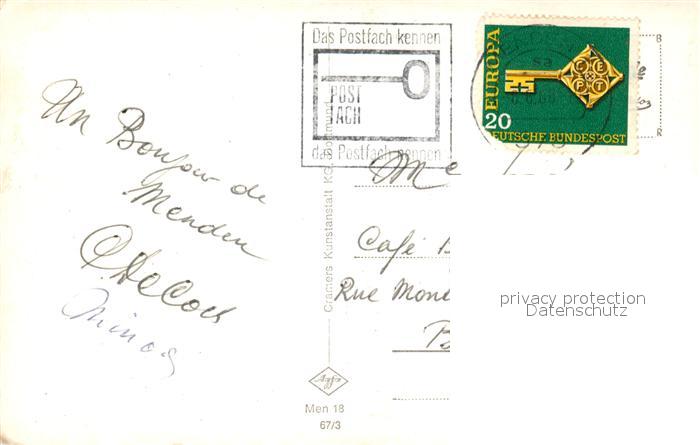 Un Bonjour de
Menden
Das Postfach kennen
POST
FACH
das Postfach nennen
EUROPA
CEPT
20
DEUTSCHE BUNDESPOST
Cramers Kunstanstalt KG, Dortmund
Café B
Rue Mon
B
privacy protection
Datenschutz
Agfa
Men 18
67/3